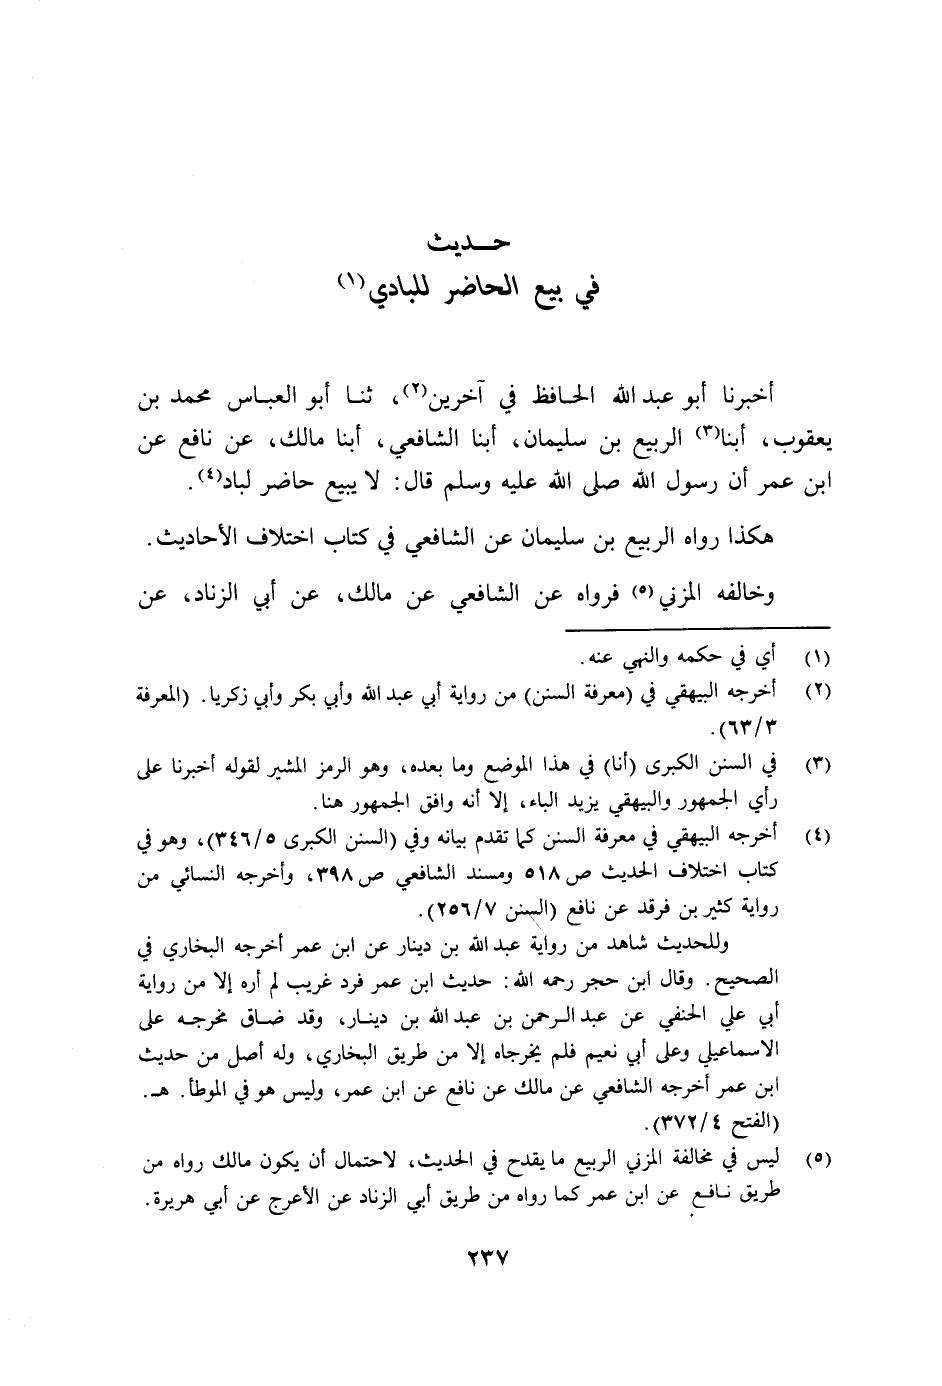 حـديث
في بيع الحاضر للبادي(١)
أخبرنا أبو عبد الله الحـافظ في آخرين(٢)، ثنـا أبو العبـاس محمد بن
يعقوب، أبنا(٣) الربيع بن سليمان، أبنا الشافعي، أبنا مالك، عن نافع عن
ابن عمر أن رسول الله صلى الله عليه وسلم قال: لا يبيع حاضر لباد(٤).
هكذا رواه الربيع بن سليمان عن الشافعي في كتاب اختلاف الأحاديث.
وخالفه المزني(٥) فرواه عن الشافعي عن مالك، عن أبي الزناد، عن
(١) أي في حكمه والنهي عنه.
(٢) أخرجه البيهقي في (معرفة السنن) من رواية أبي عبد الله وأبي بكر وأبي زكريا. (المعرفة
٦٣/٣).
(٣) في السنن الكبرى (أنا) في هذا الموضع وما بعده، وهو الرمز المشير لقوله أخبرنا على
رأي الجمهور والبيهقي يزيد الباء، إلا أنه وافق الجمهور هنا.
(٤) أخرجه البيهقي في معرفة السنن كما تقدم بيانه وفي (السنن الكبرى ٣٤٦/٥)، وهو في
كتاب اختلاف الحديث ص٥١٨ ومسند الشافعي ص٣٩٨، وأخرجه النسائي من
رواية كثير بن فرقد عن نافع (السنن ٢٥٦/٧).
وللحديث شاهد من رواية عبد الله بن دينار عن ابن عمر أخرجه البخاري في
الصحيح. وقال ابن حجر رحمه الله: حديث ابن عمر فرد غريب لم أره إلا من رواية
أبي علي الحنفي عن عبد الـرحمن بن عبد الله بن دينـار، وقد ضـاق مخرجـه على
الاسماعيلي وعلى أبي نعيم فلم يخرجاه إلا من طريق البخاري، وله أصل من حديث
ابن عمر أخرجه الشافعي عن مالك عن نافع عن ابن عمر، وليس هو في الموطأ. هـ.
(الفتح ٣٧٢/٤).
(٥) ليس في مخالفة المزني الربيع ما يقدح في الحديث، لاحتمال أن يكون مالك رواه من
طريق نـافـع عن ابن عمر كما رواه من طريق أبي الزناد عن الأعرج عن أبي هريرة.
٢٣٧